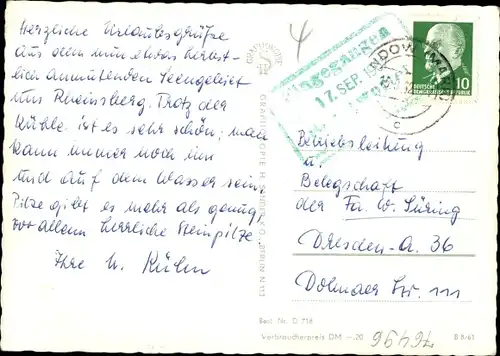 Herzliche Urlaubsgrüße
aus dem nun etwas herbst-
lich anmutenden Seengebiet
ums Rheinsberg. Trotz der
Kühle ist es sehr schön; man
kann immer noch im
und auf dem Wasser sein
Pilze gibt es mehr als genug,
vor allem herrliche Steinpilze
Ihre U. Kühn
4
GRAFOKUNST
Eingegangen
17. SEP. 19
LINDOW (MARK)
c
DEUTSCHE
DEMOKRATISCHE REPUBLIK
10
Betriebsleitung
u.
Belegschaft
der Fa. W. Süring
Dresden-A. 36
Dohnaer Str. 111
Best. Nr. D 718
Verbraucherpreis DM —.20
B 8/61
76496